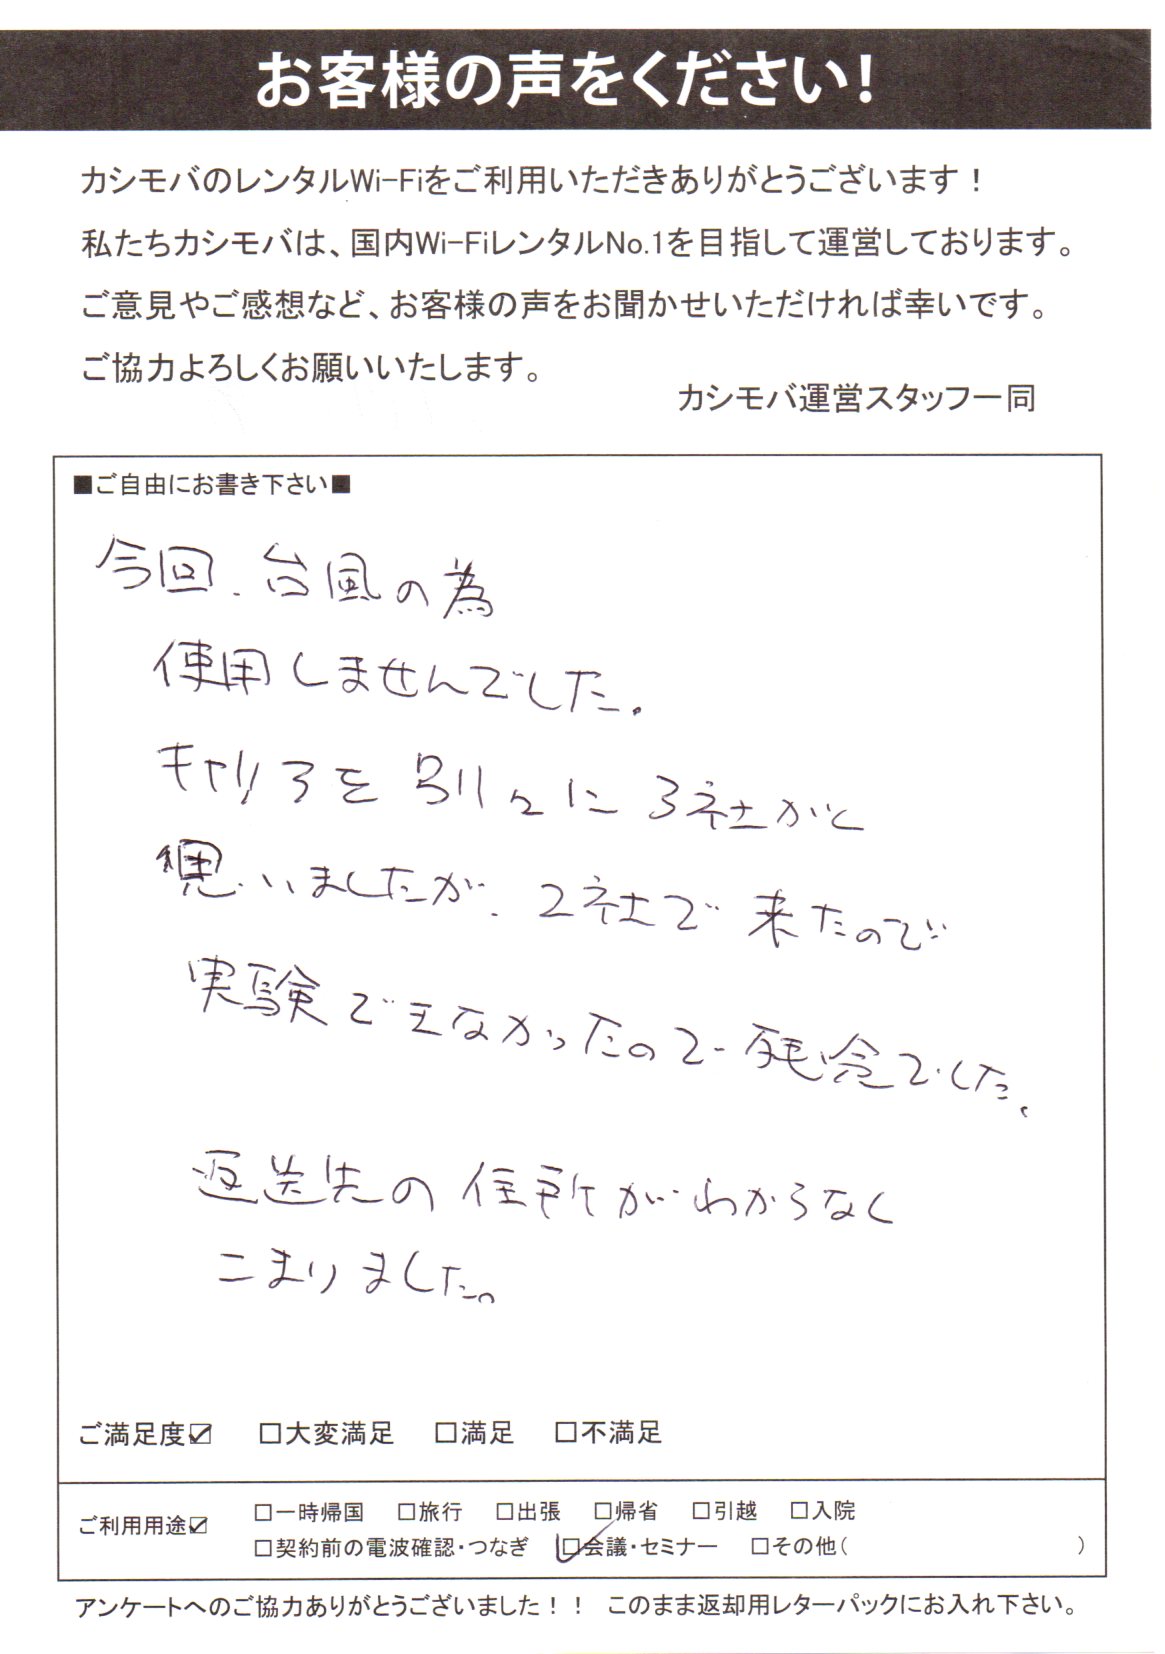 お客様の声をください!
カシモバのレンタルWi-Fiをご利用いただきありがとうございます！
私たちカシモバは、国内Wi-FiレンタルNo.1を目指して運営しております。
ご意見やご感想など、お客様の声をお聞かせいただければ幸いです。
ご協力よろしくお願いいたします。
カシモバ運営スタッフ一同
■ご自由にお書き下さい■
今回、台風の為
使用しませんでした。
キャリアを別々に3社がと
思いましたが、2社で来たので
実験できなかったので残念でした。
返送先の住所がわからなく
こまりました。
ご満足度☑ □大変満足 □満足 □不満足
ご利用用途☑ □一時帰国 □旅行 □出張 □帰省 □引越 □入院
□契約前の電波確認・つなぎ ☑会議・セミナー □その他( )
アンケートへのご協力ありがとうございました！！ このまま返却用レターパックにお入れ下さい。